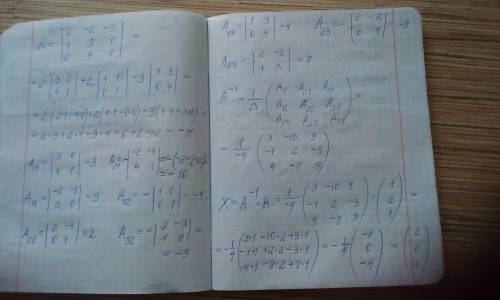 Δ = |2 -2 -3; 1 3 0; 0 4 1| =
= 2 |3 0; 4 1| + 2 |1 0; 0 1| - 3 |1 3; 0 4| =
= 2(3·1-4·0)+2(1·1-0·0)-3(1·4-3·0)=
= 2·3+2·1-3·4=6+2-12=-4
A₁₁ = |3 0; 4 1| = 3 A₂₁ = -|-2 -3; 4 1| = -(-2-(-12)) = -10
A₃₁ = |-2 -3; 3 0| = 9 A₁₂ = -|1 0; 0 1| = -1
A₂₂ = |2 -3; 0 1| = 2 A₃₂ = -|2 -3; 1 0| =
= -3
A₁₃ = |1 3; 0 4| = 4 A₂₃ = -|2 -2; 0 4| = -8
A₃₃ = |2 -2; 1 3| = 8
A⁻¹ = 1/Δ (A₁₁ A₂₁ A₃₁; A₁₂ A₂₂ A₃₂; A₁₃ A₂₃ A₃₃) =
= 1/-4 (3 -10 9; -1 2 -3; 4 -8 8)
X = A⁻¹·B = 1/-4 (3 -10 9; -1 2 -3; 4 -8 8) · (1; 2; 1) =
= -1/4 (3·1-10·2+9·1; -1·1+2·2-3·1; 4·1-8·2+8·1) = -1/4 (-8; 0; -4) = (2; 0; 1)